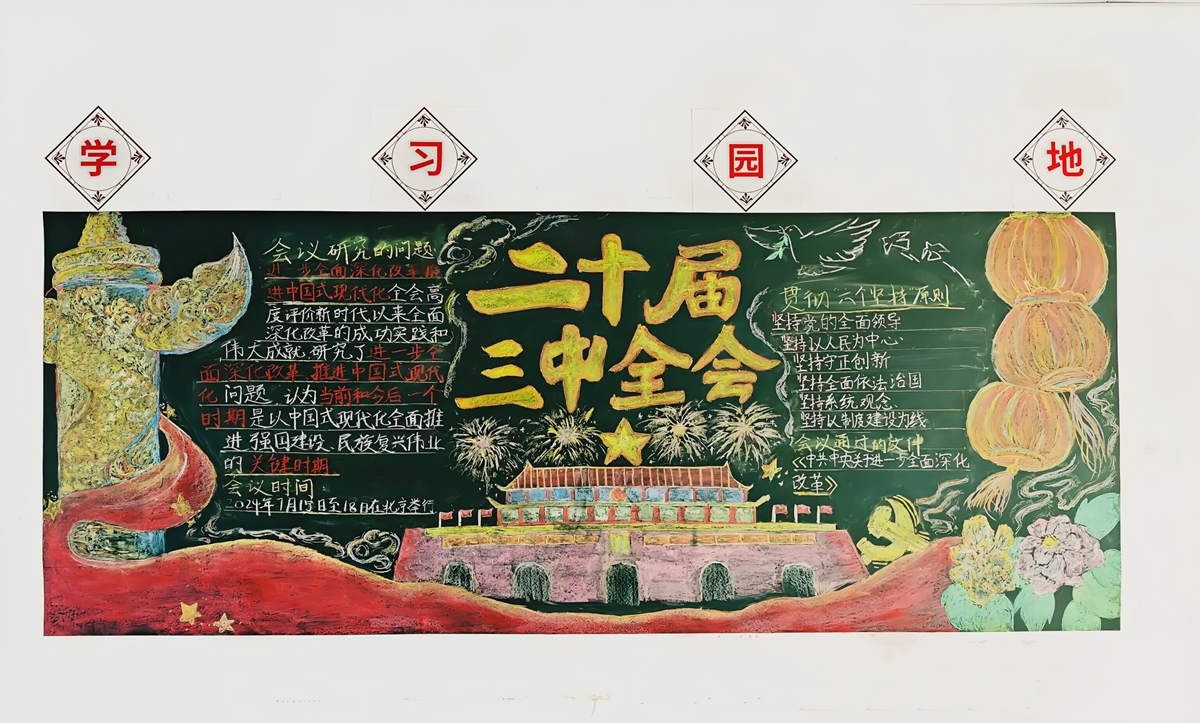 学 习 园 地
会议研究的问题
进一步全面深化改革推
进中国式现代化全会高
度评价新时代以来全面
深化改革的成功实践和
伟大成就,研究了进一步全
面深化改革、推进中国式现代
化问题。认为当前和今后一个
时期是以中国式现代化全面推
进强国建设、民族复兴伟业
的关键时期
会议时间:
2024年7月15日至18日在北京举行
二十届
三中全会
贯彻“六个坚持”原则
坚持党的全面领导
坚持以人民为中心
坚持守正创新
坚持全面依法治国
坚持系统观念
坚持以制度建设为线
会议通过的文件
《中共中央关于进一步全面深化
改革》